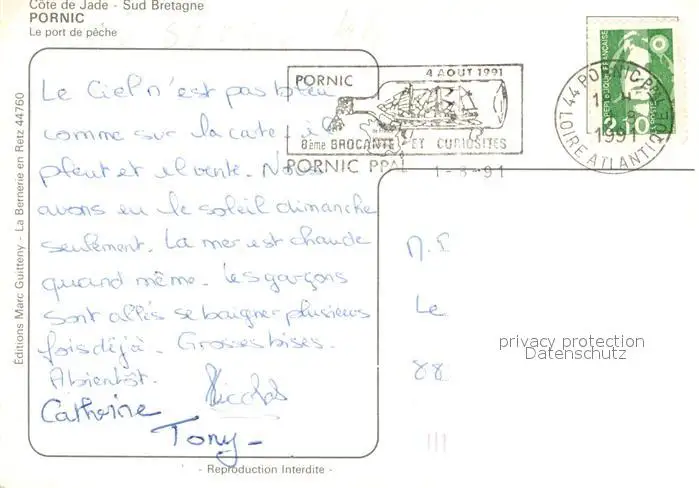 Côte de Jade - Sud Bretagne
PORNIC
Le port de pêche
Éditions Marc Guitteny - La Bernerie en Retz 44760
Le Ciel n'est pas bleu
comme sur la carte il
pleut et il vente. Nous
avons eu le soleil dimanche
seulement. La mer est chaude
quand même. Les garçons
sont allés se baigner plusieurs
fois déjà. Grosses bises.
Abientôt. Nicolas
Catherine
Tony -
PORNIC 4 AOUT 1991
8ème BROCANTE ET CURIOSITES
PORNIC PPAL 1-8-91
44 PORNIC PPAL
1991
LOIRE ATLANTIQUE
REPUBLIQUE FRANÇAISE
2,10
Le
88
privacy protection
Datenschutz
- Reproduction Interdite -